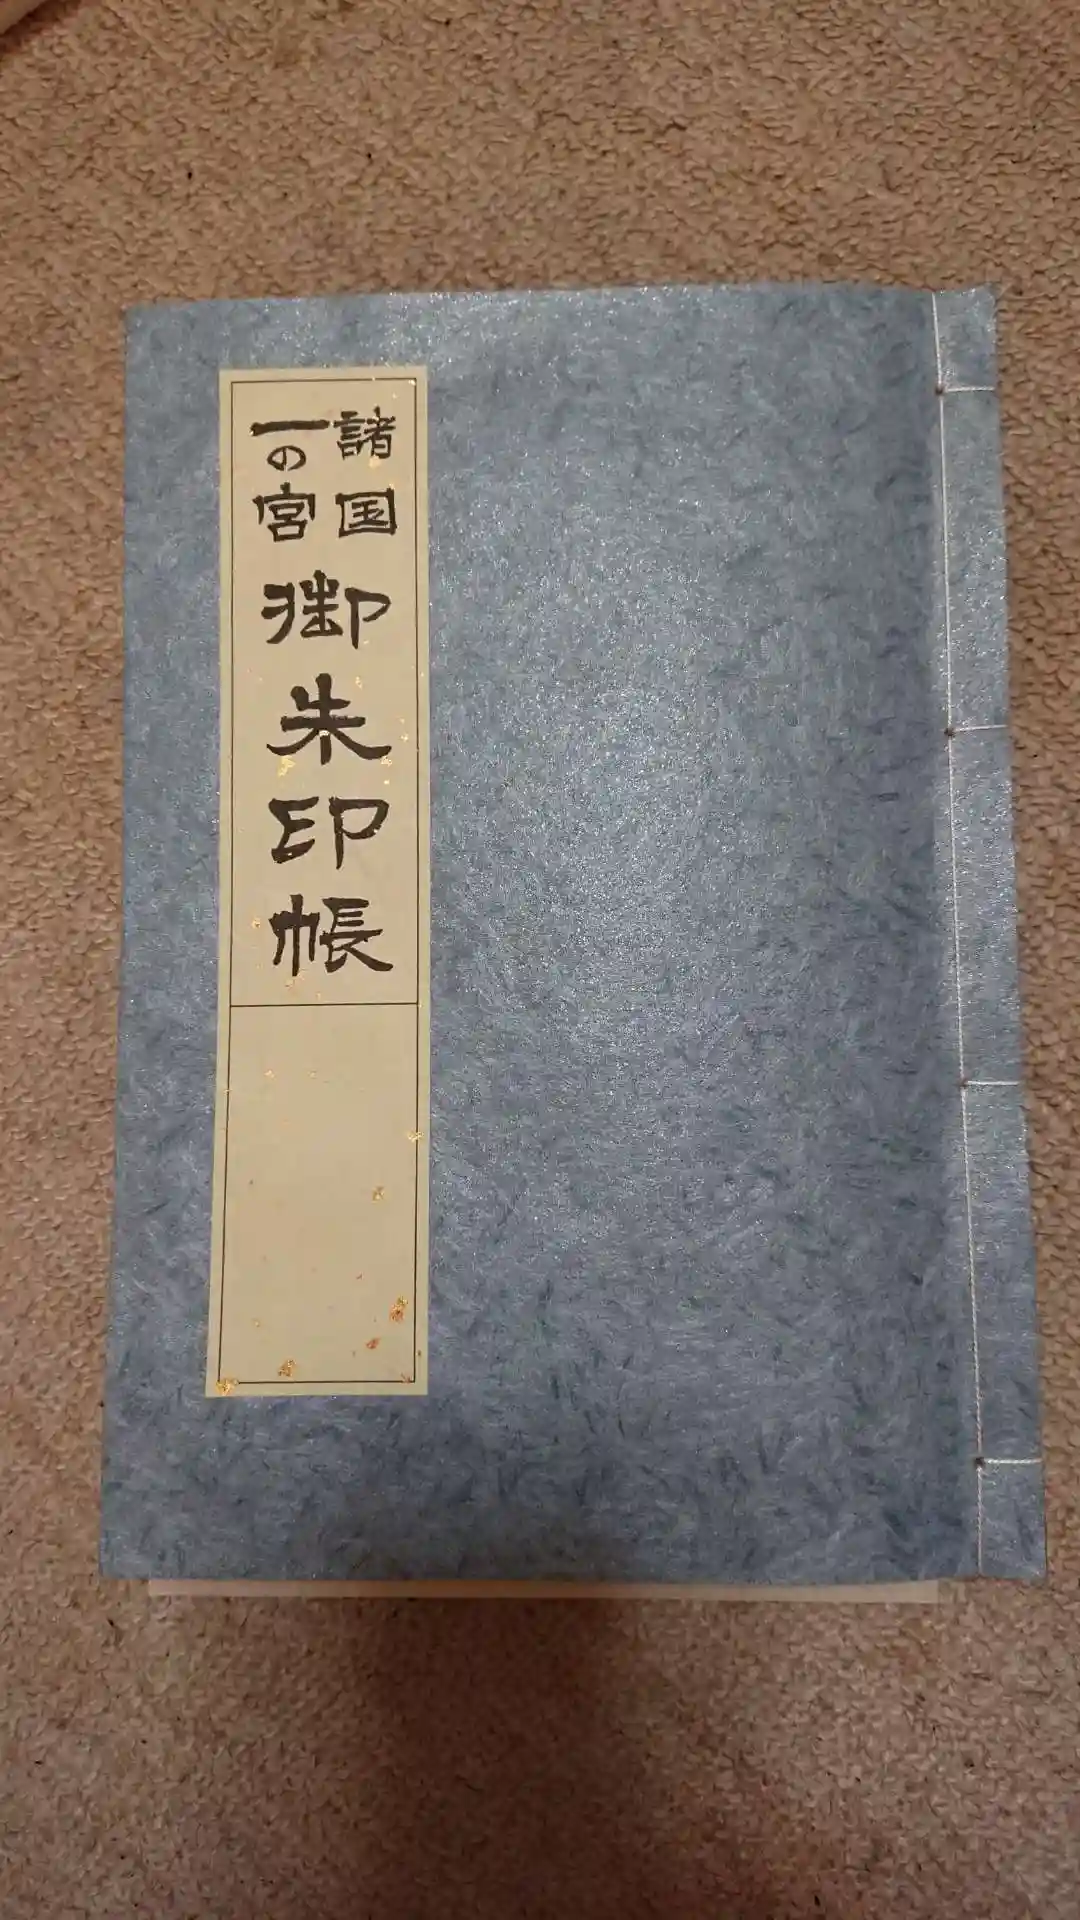 諸国
一の宮
御朱印帳